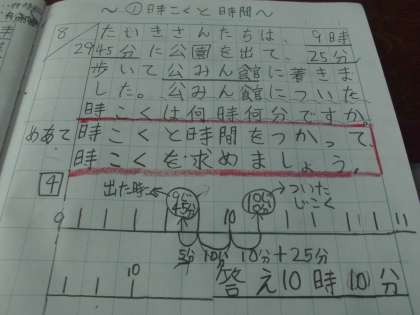 〜①時こくと時間〜
8/29
たいきさんたちは、9時
45分に公園を出て、25分
歩いて公みん館に着きま
した。公みん館についた
時こくは何時何分ですか。
めあて
時こくと時間をつかって、
時こくを求めましょう。
4
出た時こく
9じ45分
10じ10分
ついたじこく
9
10
11
5分 10分 10分+25分
10
答え10時10分